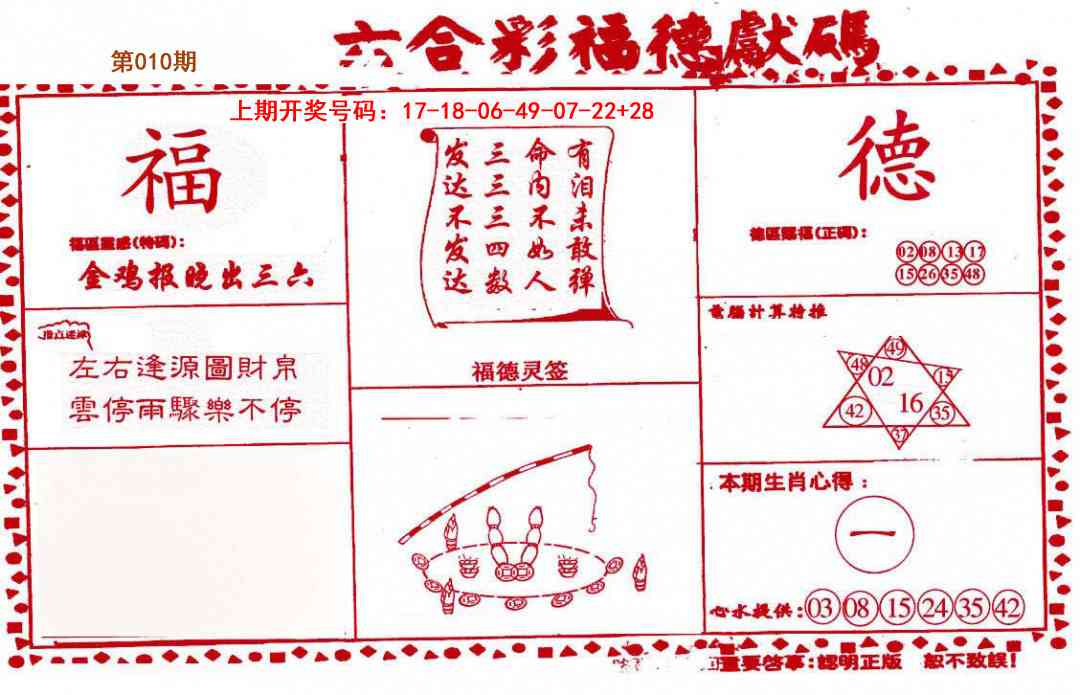 六合彩福德獻碼
第010期
上期开奖号码：17-18-06-49-07-22+28
福
福區靈感(特碼)：
金鸡报晚出三六
左右逢源圖財帛
雲停雨驟樂不停
有泪未敢弹
命内不如人
三三三四数
发达不发达
福德灵签
德
德區賜福(正碼)：
02 08 13 17
15 26 35 48
電腦計算特推
49
48
15
02
16
42
35
37
本期生肖心得：
一
心水提供：03 08 15 24 35 42
重要啓事：認明正版 恕不致誤！